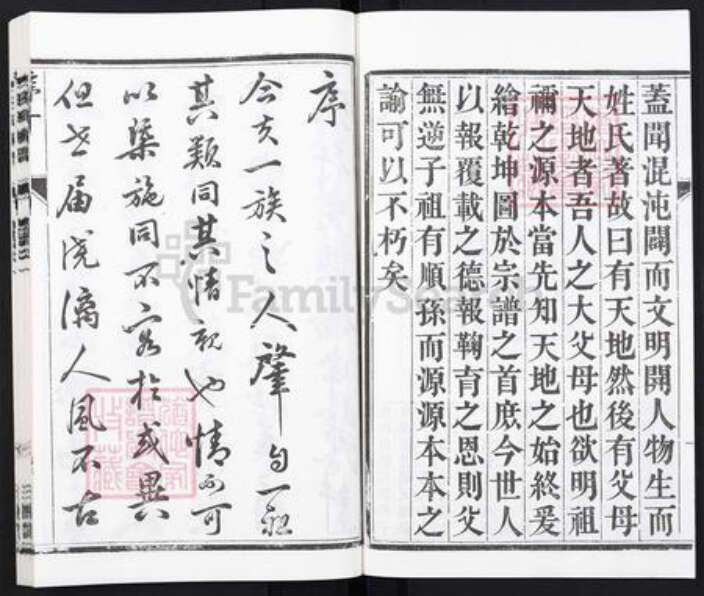 蓋聞混沌闢而文明開人物生而
姓氏著故曰有天地然後有父母
天地者吾人之大父母也欲明祖
禰之源本當先知天地之始終爰
繪乾坤圖於宗譜之首庶今世人
以報覆載之德報鞠育之恩則父
無逆子祖有順孫而源源本本之
諭可以不朽矣
序
合支一族之人肇自一
其類同其情親也情而可
以槩施同不容於或異
但世届澆漓人風不古
FamilySearch